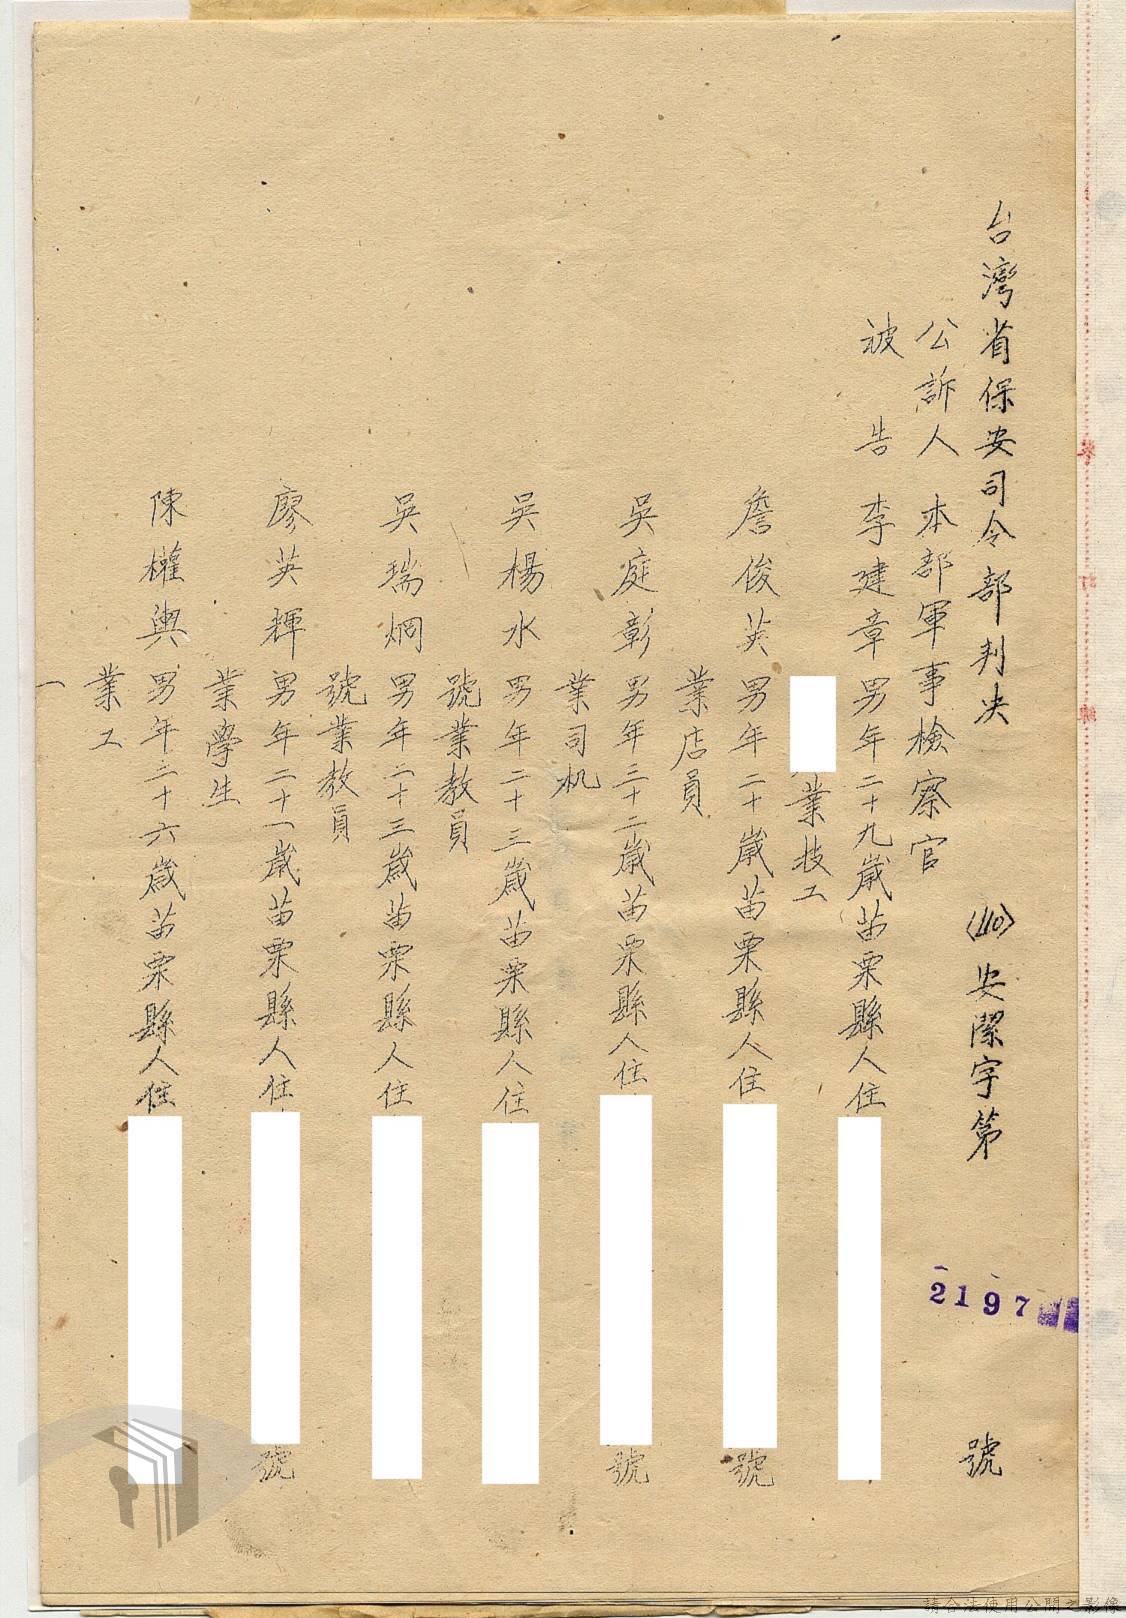 台灣省保安司令部判決 (40)安潔字第 號
2197
公訴人 本部軍事檢察官
被告 李建章 男年二十九歲苗栗縣人住
業技工
詹俊英 男年二十歲苗栗縣人住 號
業店員
吳庭彰 男年三十二歲苗栗縣人住 號
業司机
吳楊水 男年二十三歲苗栗縣人住
號業教員
吳瑞炯 男年二十三歲苗栗縣人住
號業教員
廖英輝 男年二十一歲苗栗縣人住 號
業學生
陳權輿 男年二十六歲苗栗縣人住
業工
一
請合法使用公開之影像